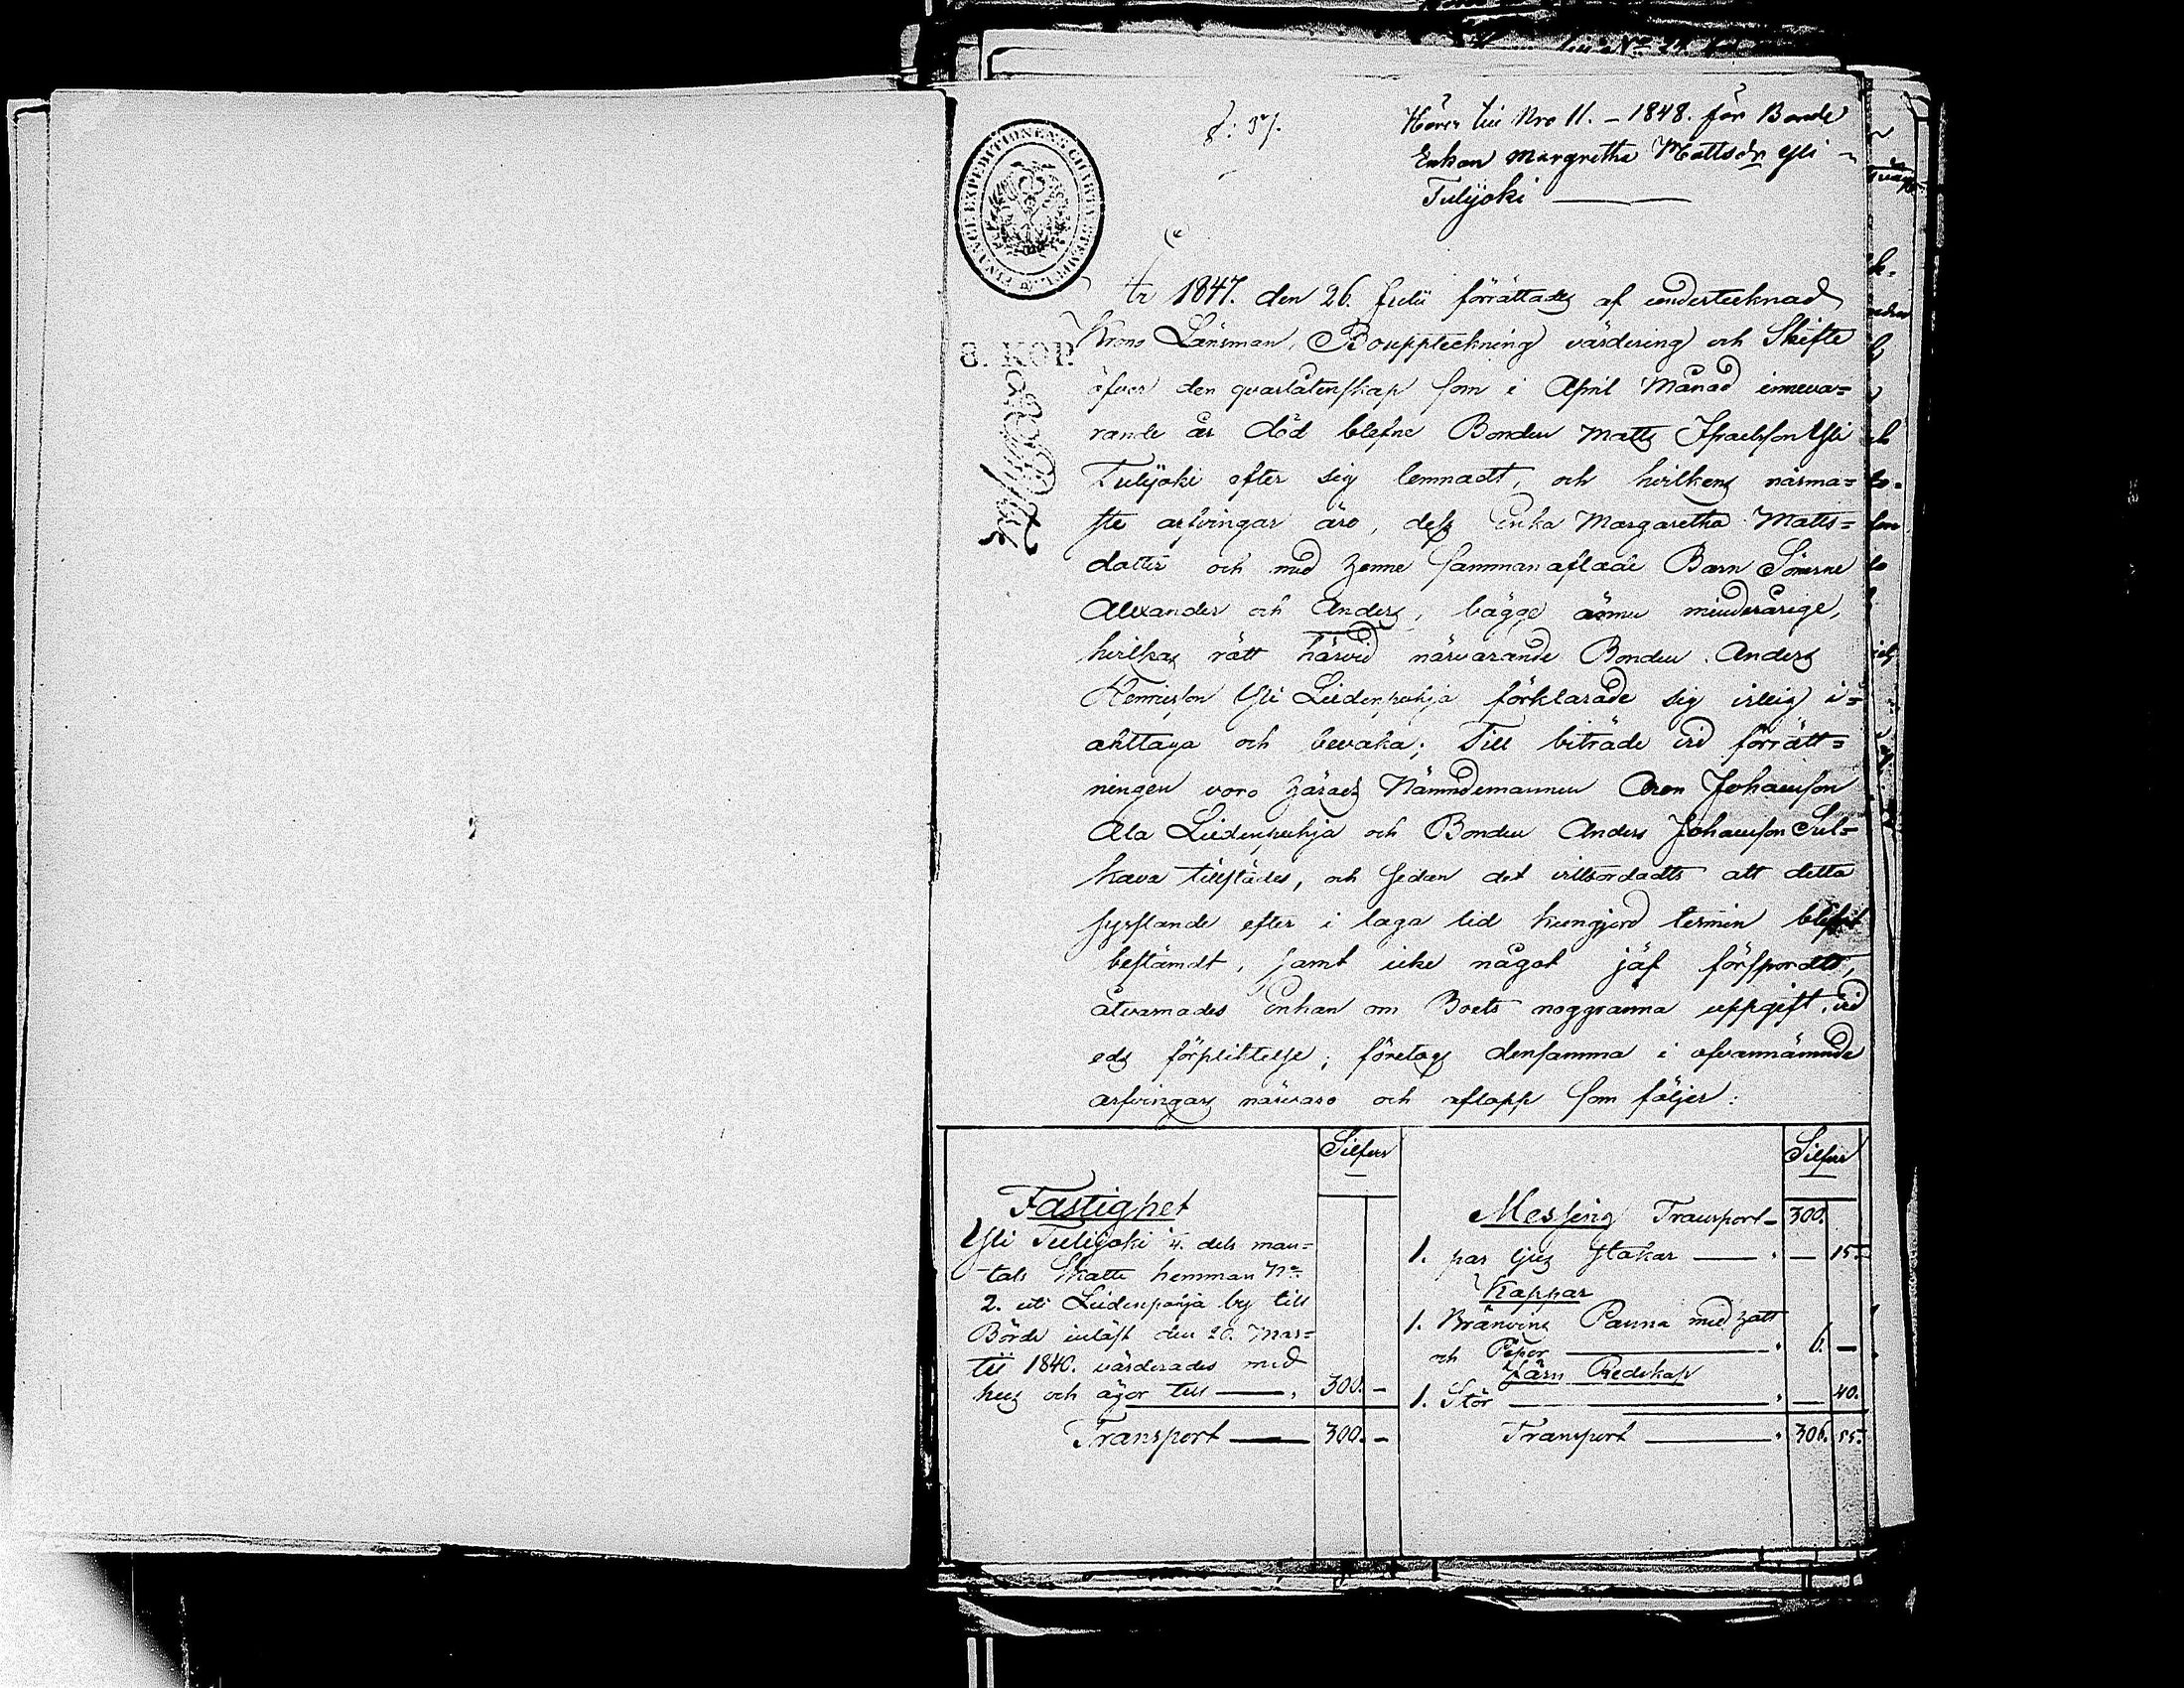 Hörer till Nro 11. – 1848. för Bonde
Enkan Margretha Mattsdr Yli
Tulijoki
FINANCE EXPEDITIONENS CHARTA STEMPEL
8. KOP.
År 1847. den 26. Julii förrättades af undertecknad
Krono Länsman, Bouppteckning värdering och Skifte
öfver den qvarlåtenskap som i April Månad inneva=
rande år död blefne Bonden Matts Israelsson Yli
Tulijoki efter sig lemnadt, och hvilkens närma=
ste arfvingar äro, dess Enka Margaretha Matts=
dotter och med henne sammanaflade Barn Sönerne
Alexander och Anders, bägge ännu minderårige,
hvilkas rätt härvid närvarande Bonden Anders
Henricsson Yli Liidenpohja förklarade sig villig i=
akttaga och bevaka; Till biträde vid förrätt=
ningen voro härads Nämndemannen Aron Johansson
Ala Liidenpohja och Bonden Anders Johansson Sul=
kava tillstädes, och sedan det vittsordadts att detta
syftande efter i laga tid kungjord termin blifvit
bestämdt, samt icke något jäf förspordts,
åtvarnades Enkan om Boets noggranna uppgift, vid
eds förpliktelse; företogs densamma i ofvannämnde
arfvingars närvaro och aflopp som följer:
Silfver
Fastighet
Yli Tulijoki ¼. dels man=
tals Skatte hemman No
2. uti Liidenpohja by till
Börde inlöst den 20. Mar=
tii 1840. värderades med
hus och ägor till 300. –
Transport 300. –
Silfver
Messing Transport – 300.
1. par ljus stakar – 15.
Koppar
1. Bränvins Panna med hatt
och Pipor 6. –
Järn Redskap
1. Stör – 40.
Transport 306. 55.